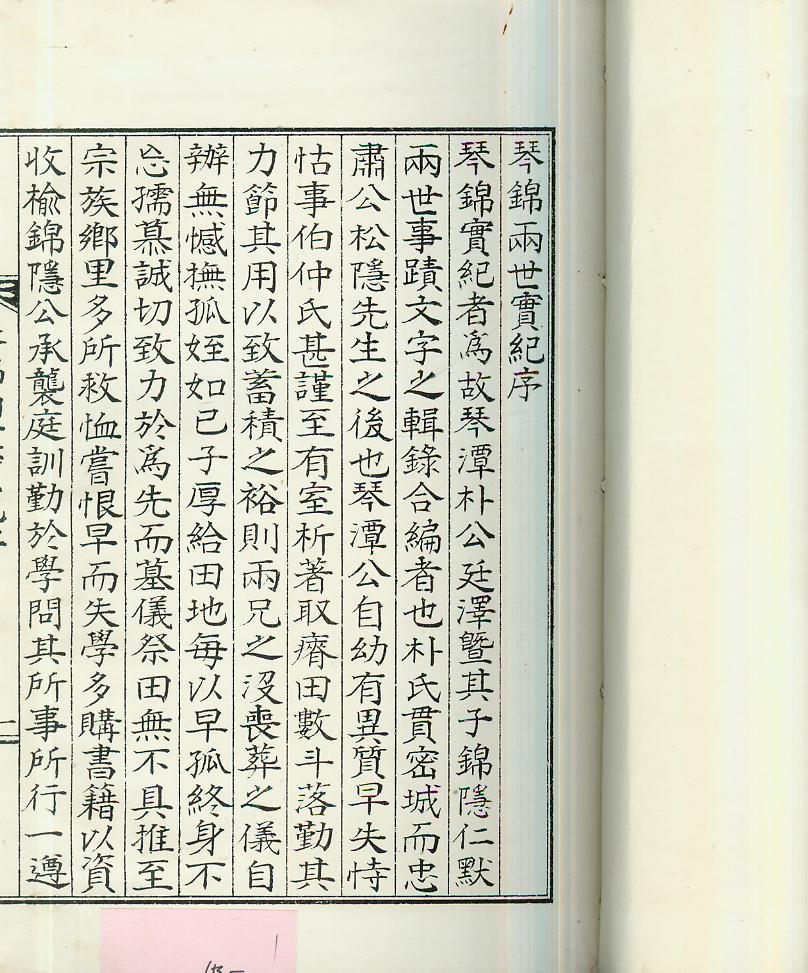 琴錦兩世實紀序
琴錦實紀者爲故琴潭朴公廷澤曁其子錦隱仁默
兩世事蹟文字之輯錄合編者也朴氏貫密城而忠
肅公松隱先生之後也琴潭公自幼有異質早失恃
怙事伯仲氏甚謹至有室析著取瘠田數斗落勤其
力節其用以致蓄積之裕則兩兄之沒喪葬之儀自
辦無憾撫孤姪如已子厚給田地每以早孤終身不
忘孺慕誠切致力於爲先而墓儀祭田無不具推至
宗族鄕里多所救恤嘗恨早而失學多購書籍以資
收楡錦隱公承襲庭訓勤於學問其所事所行一遵